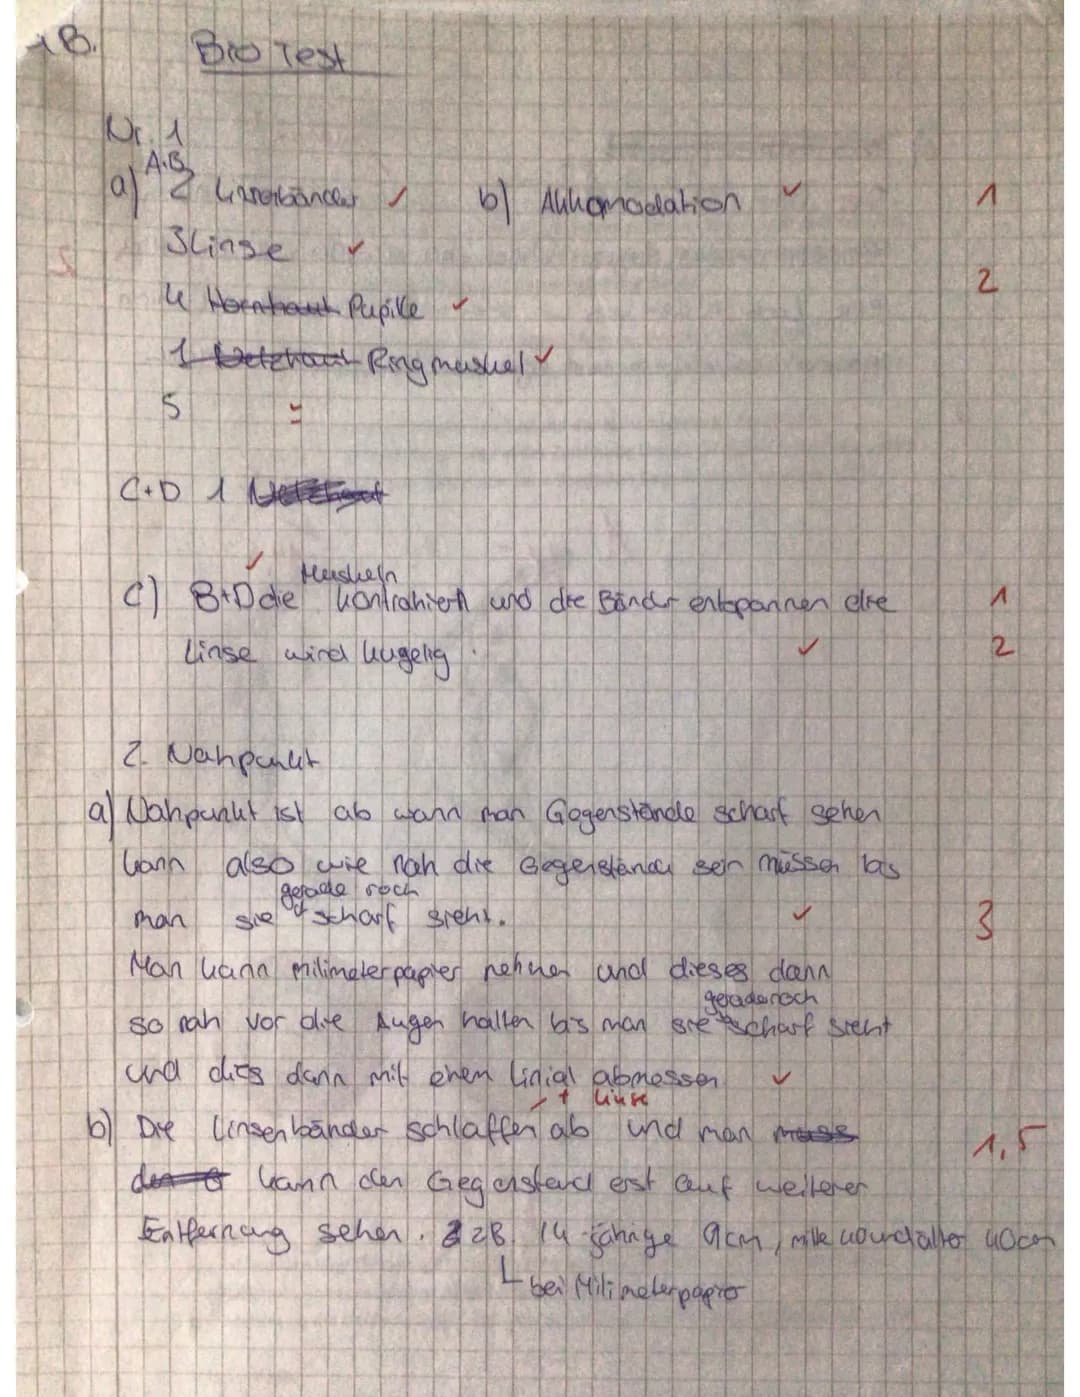 1B.
Bio Test
Nr. 1
A.B
a) 2 Linsenbänder ✓ b) Akkomodation ✓ 1
3 Linse ✓
2
4 Hornhaut Pupille ✓
1 Netzhaut Ringmuskel ✓
5
C+D 1 Netzhaut
Muskeln
C) B+D die kontrahiert und die Bänder entspannen die 1
Linse wird kugelig. ✓ 2
2. Nahpunkt
a) Nahpunkt ist ab wann man Gegenstände scharf sehen
kann also wie nah die Gegenstände sein müssen bis
gerade noch
man sie scharf sieht. ✓ 3
Man kann milimeterpapier nehmen und dieses dann
gerade noch
so nah vor die Augen halten bis man sie scharf sieht
und dies dann mit einem Linial abmessen ✓
+ Linse
b) Die Linsenbänder schlaffen ab und man muss 1,5
kann den Gegenstand erst auf weiterer
Entfernung sehen. zB. 14-jährige 9cm, 40cm
bei Milimeterpapier